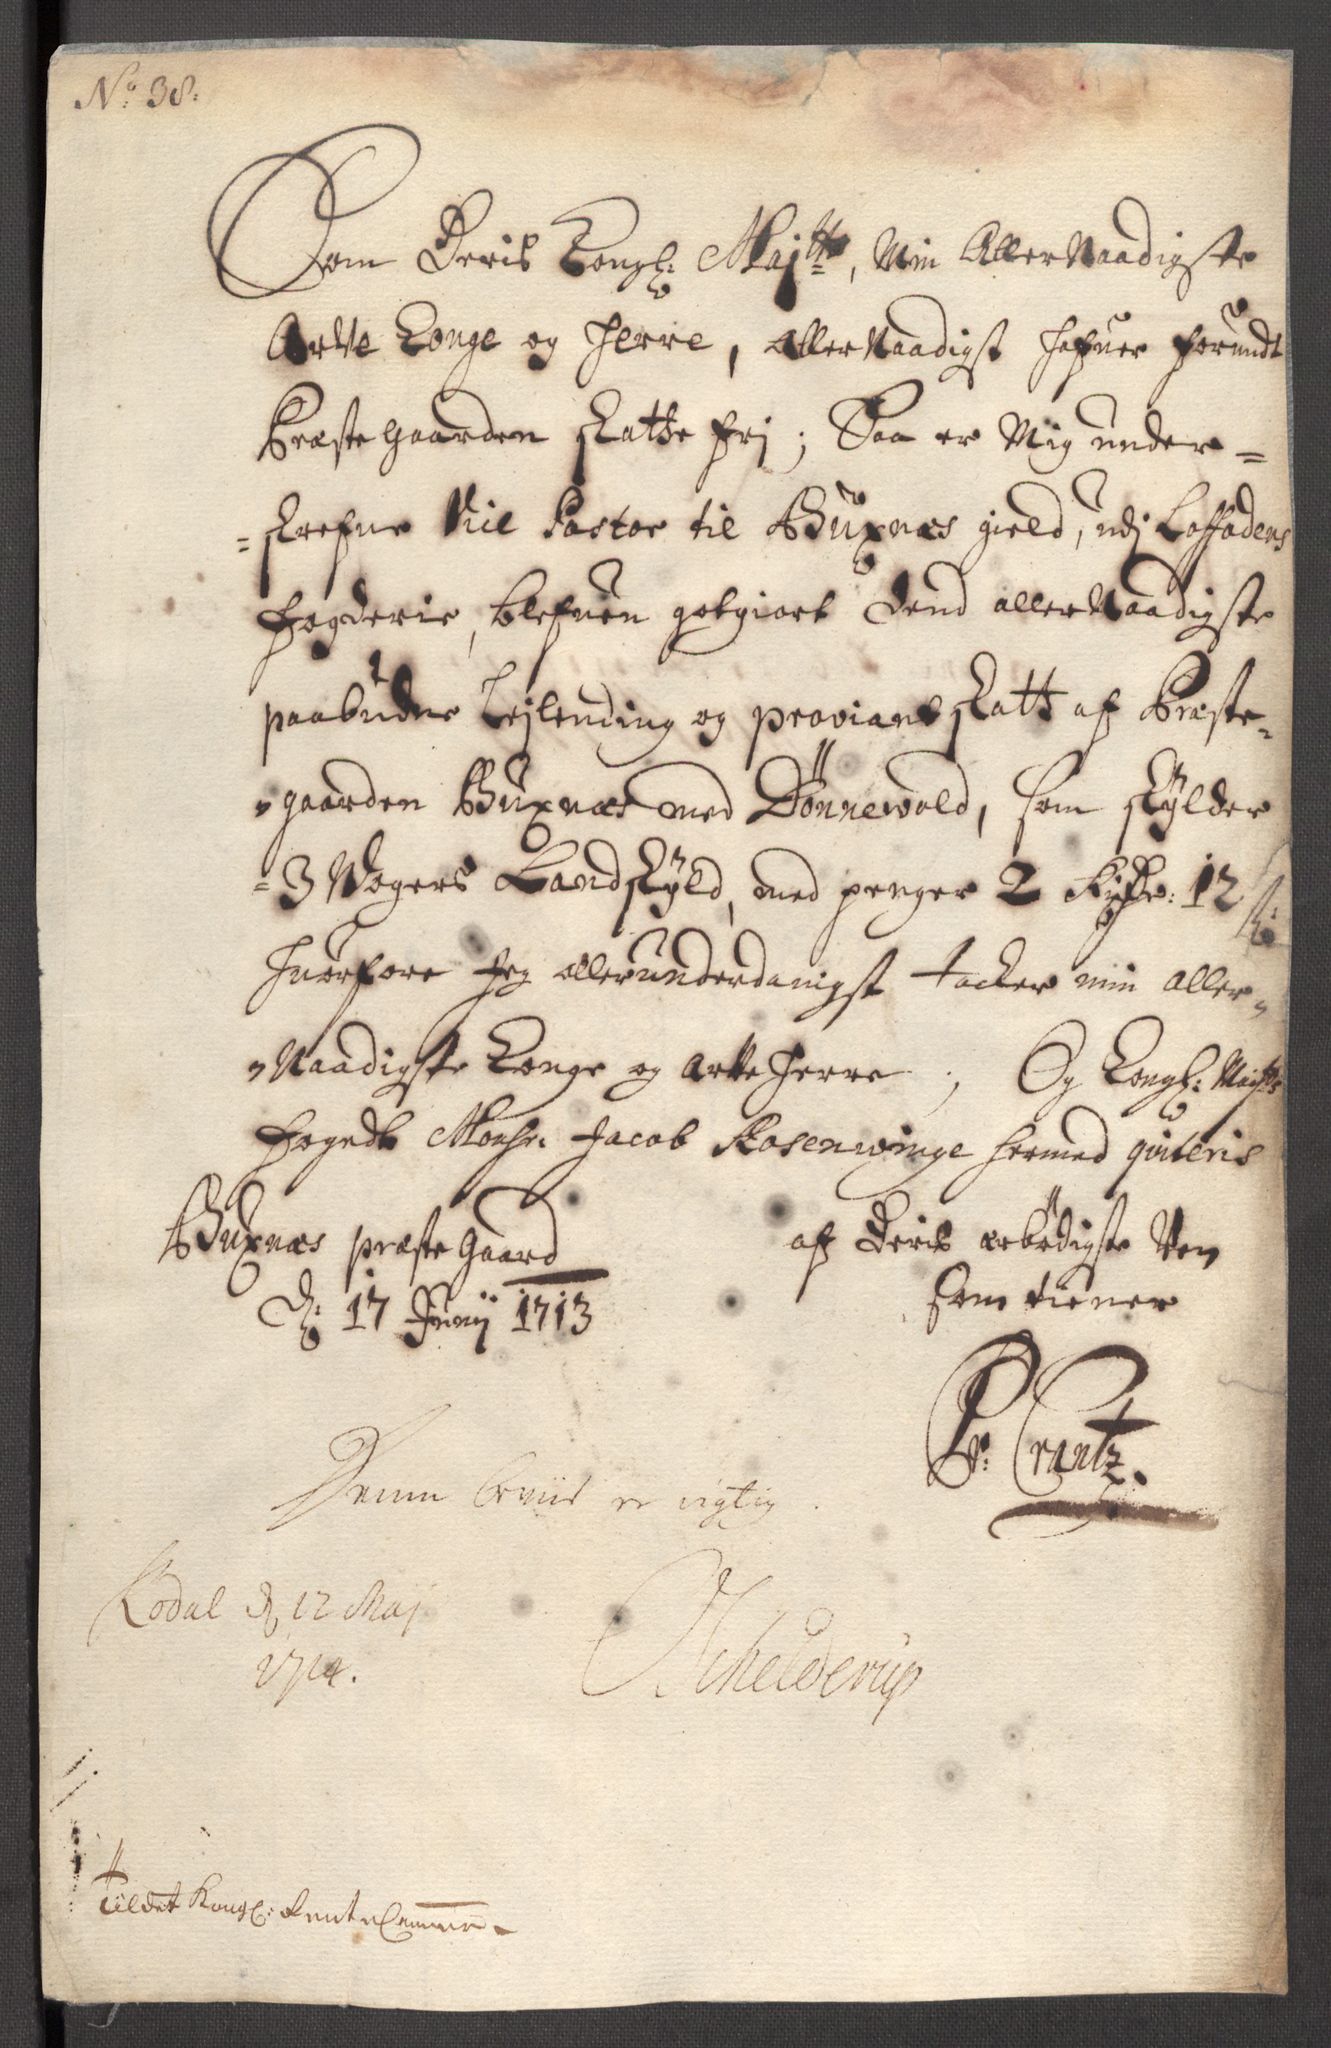 No: 38.
Som Deris Kongl: Majtts, Min AllerNaadigste
ArVe Konge og Herre, AllerNaadigst hafuer forundt
Præstegaarden skatte frj; Saa er Mig under=
=skrefne Vice Pastor til Buxnæs gield, udj Loffodens
fogderie, blefuen gotgiort dend allerNaadigste
paabudne Lejlending og proviant skatt af Præste-
gaarden Buxnæs med Dönnewold, som skylder
=3 Wogers Landskyld, med penger 2 Rixdr: 12 s:
huorfore Jeg allerunderdanigst tacker min aller-
Naadigste Konge og arfve Herre; Og Kongl: Majtts
foged Monsr. Jacob Rosenwinge hermed qviteris
Buxnæs præste Gaard
d: 17 Junij 1713
af Deris ærbödigste Ven
som tiener
Pr: Crantz.
Denne beviis er rigtig.
d 12 Maj
1714.
Schelderup
Til det Kongl: Rente Cammer